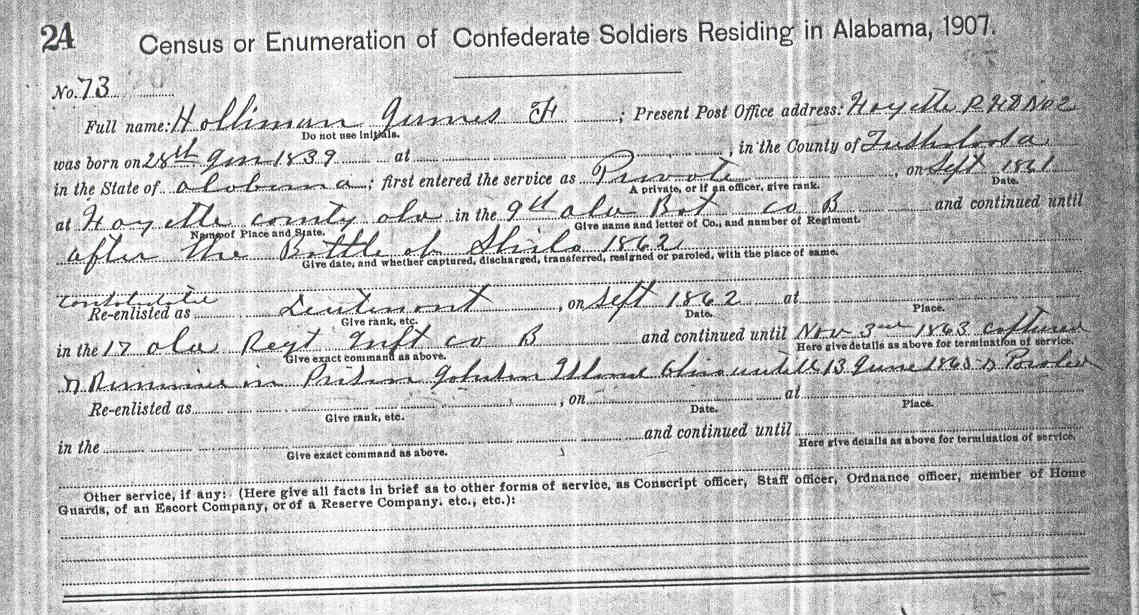 24 Census or Enumeration of Confederate Soldiers Residing in Alabama, 1907.
No. 73
Full name: Holliman James F ; Present Post Office address: Fayette R F D No 2
Do not use initials.
was born on 28th Jan 1839 at , in the County of Tushkloosa
in the State of alabama ; first entered the service as Private , on Sept 1861
A private, or if an officer, give rank. Date.
at Fayette county ala in the 9th ala Bat co B and continued until
Name of Place and State. Give name and letter of Co., and number of Regiment.
after the Battle of Shilo 1862
Give date, and whether captured, discharged, transferred, resigned or paroled, with the place of same.
Re-enlisted as Leutenant , on Sept 1862 at
Give rank, etc. Date. Place.
in the 17 ala Regt Inft co B and continued until Nov 3rd 1863 captured
Give exact command as above. Here give details as above for termination of service.
in Prison Johnson Island until 13 June 1865
Re-enlisted as , on at
Give rank, etc. Date. Place.
in the and continued until
Give exact command as above. Here give details as above for termination of service.
Other service, if any: (Here give all facts in brief as to other forms of service, as Conscript officer, Staff officer, Ordnance officer, member of Home
Guards, of an Escort Company, or of a Reserve Company. etc., etc.):